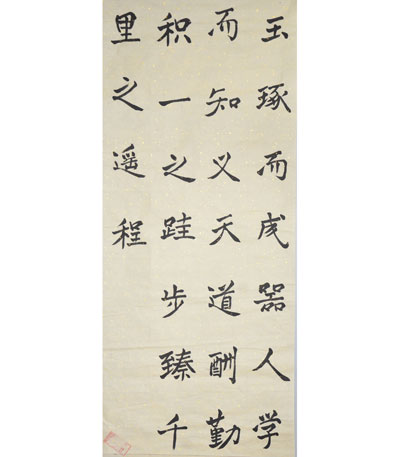 玉琢而成器人学
而知义天道酬勤
积一之跬步臻千
里之遥程